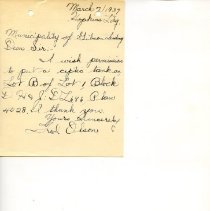 March 7/1939
Hopkins Ldg
Municipality of
Dear Sir:
I wish permission
to put a septic tank on
Lot B of Lot 1 Block
L 696 Plan
4028. I thank you
Yours Sincerely
Olson